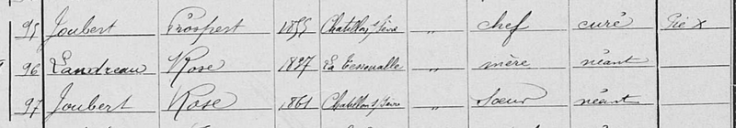 95 Joubert Prospert 1855 Chatillon s/ Sèvre " chef curé
96 Landreau Rose 1827 La Tessoualle " mère néant
97 Joubert Rose 1861 Chatillon s/ Sèvre " sœur néant